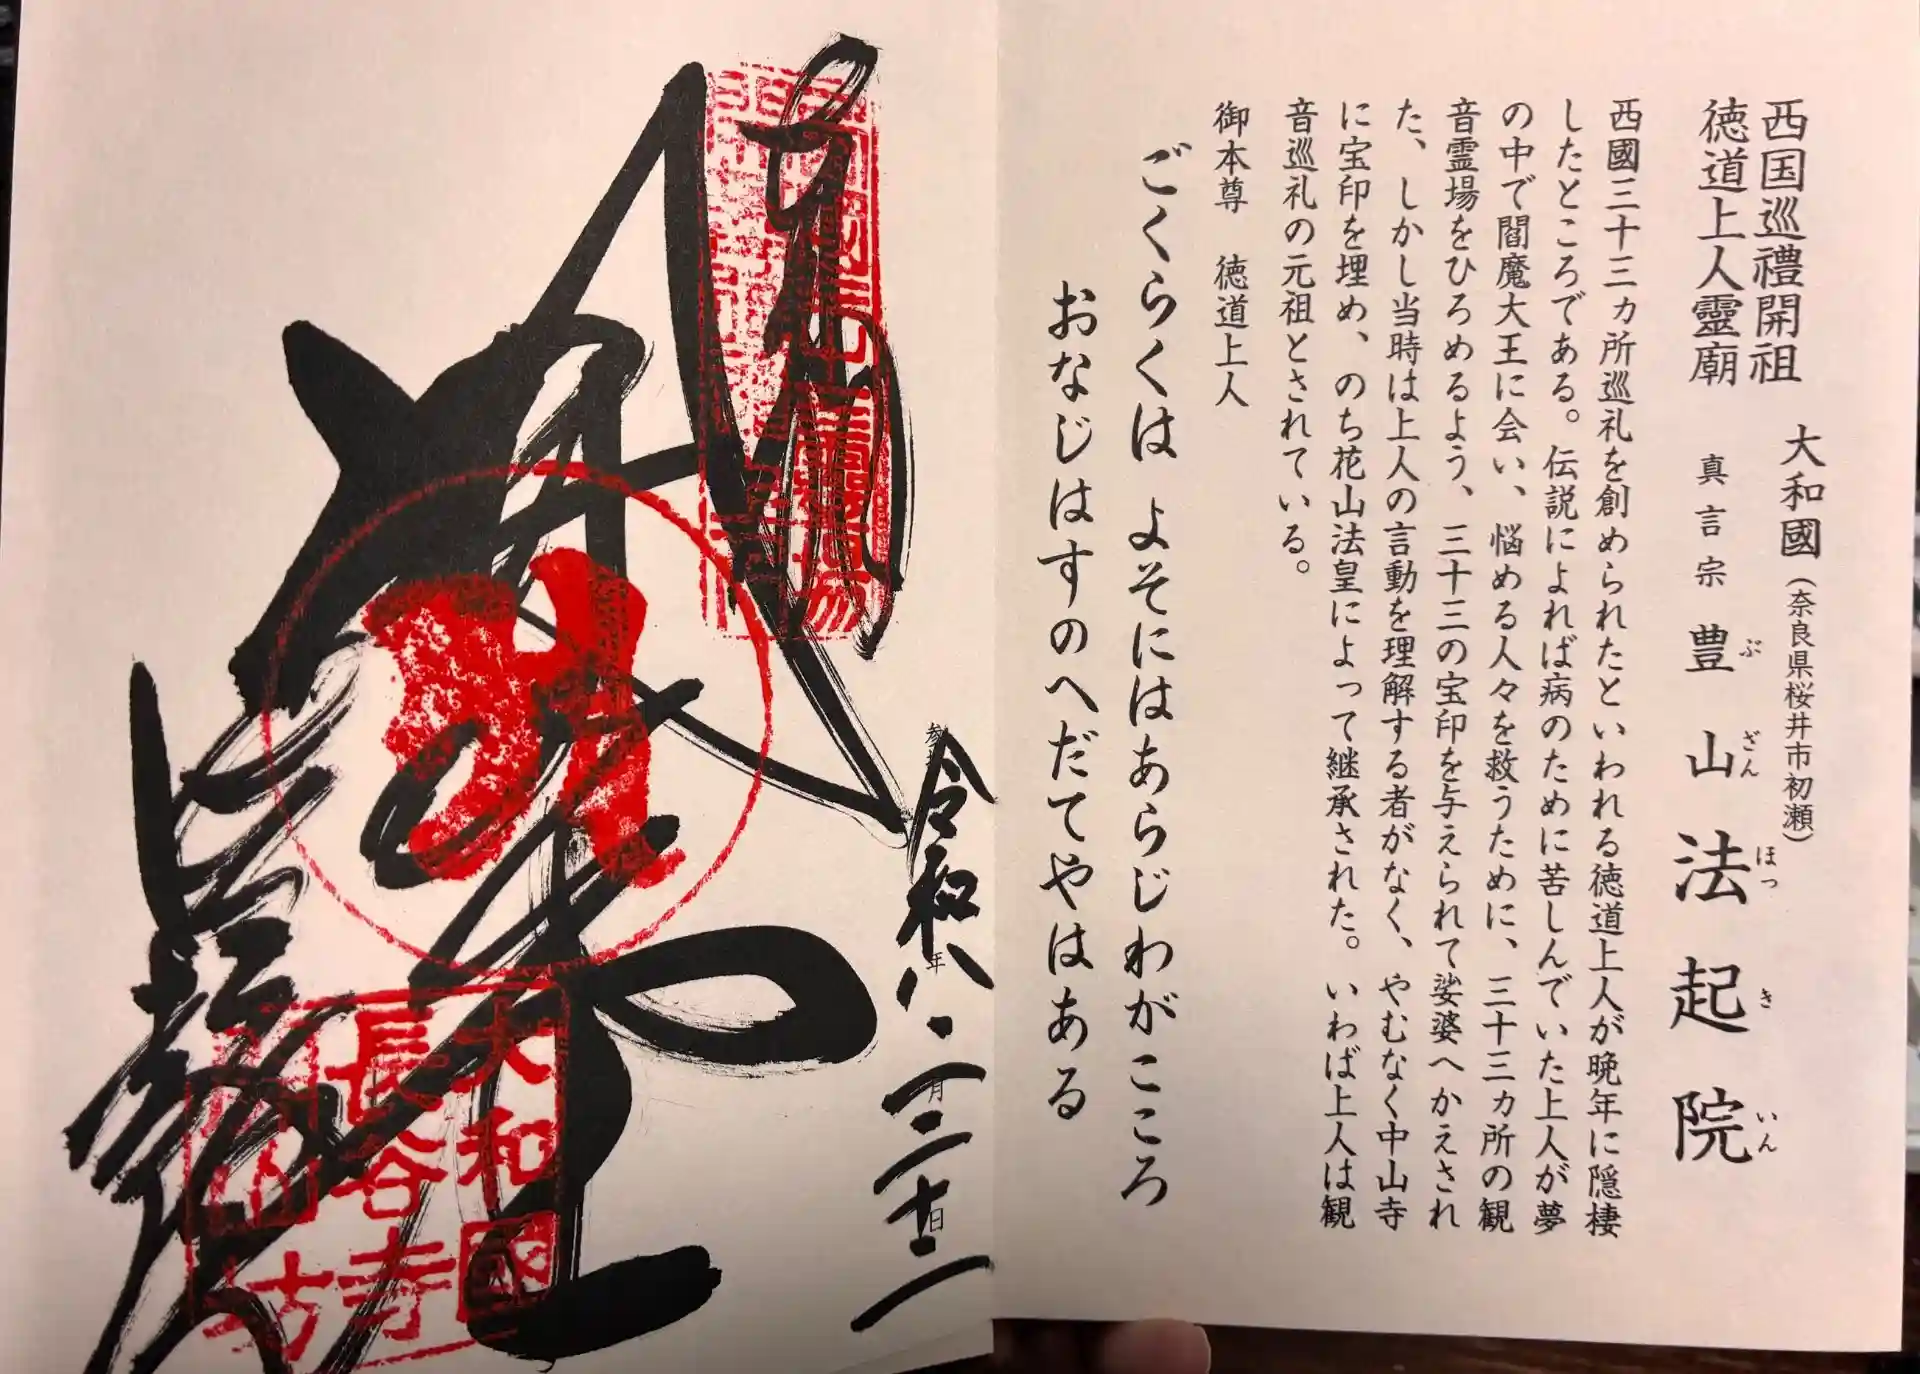 西国巡禮開祖
徳道上人靈廟
大和國（奈良県桜井市初瀬）
真言宗 豊山 法起院
ぶ ざん ほっ き いん
西國三十三ヵ所巡礼を創められたといわれる徳道上人が晩年に隠棲
したところである。伝説によれば病のために苦しんでいた上人が夢
の中で閻魔大王に会い、悩める人々を救うために、三十三ヵ所の観
音霊場をひろめるよう、三十三の宝印を与えられて娑婆へかえされ
た、しかし当時は上人の言動を理解する者がなく、やむなく中山寺
に宝印を埋め、のち花山法皇によって継承された。いわば上人は観
音巡礼の元祖とされている。
御本尊 徳道上人
ごくらくは よそにはあらじわがこころ
おなじはすのへだてやはある
令和八年・二月二十二日
大和國
長谷寺